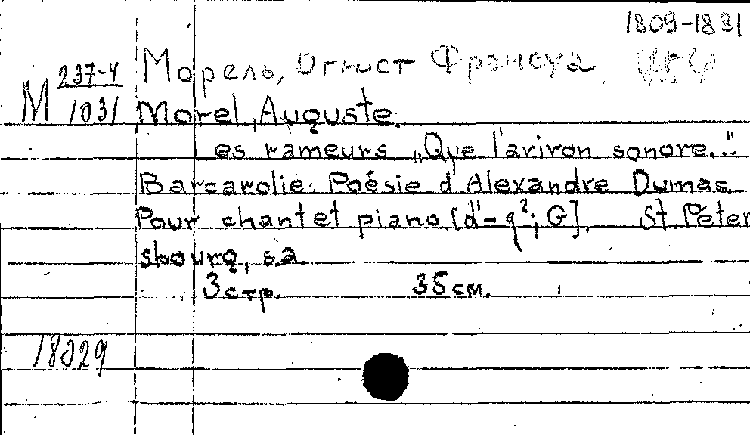 1809-1881
Морель, Огюст Франсуа
М 237-4
1031
Morel, Auguste.
Les rameurs „Que l'aviron sonore..."
Barcarolle. Poésie d'Alexandre Dumas
Pour chant et piano [d"-g²; G]. St. Peter
sbourg, s.a.
3 стр. 35 см.
18029